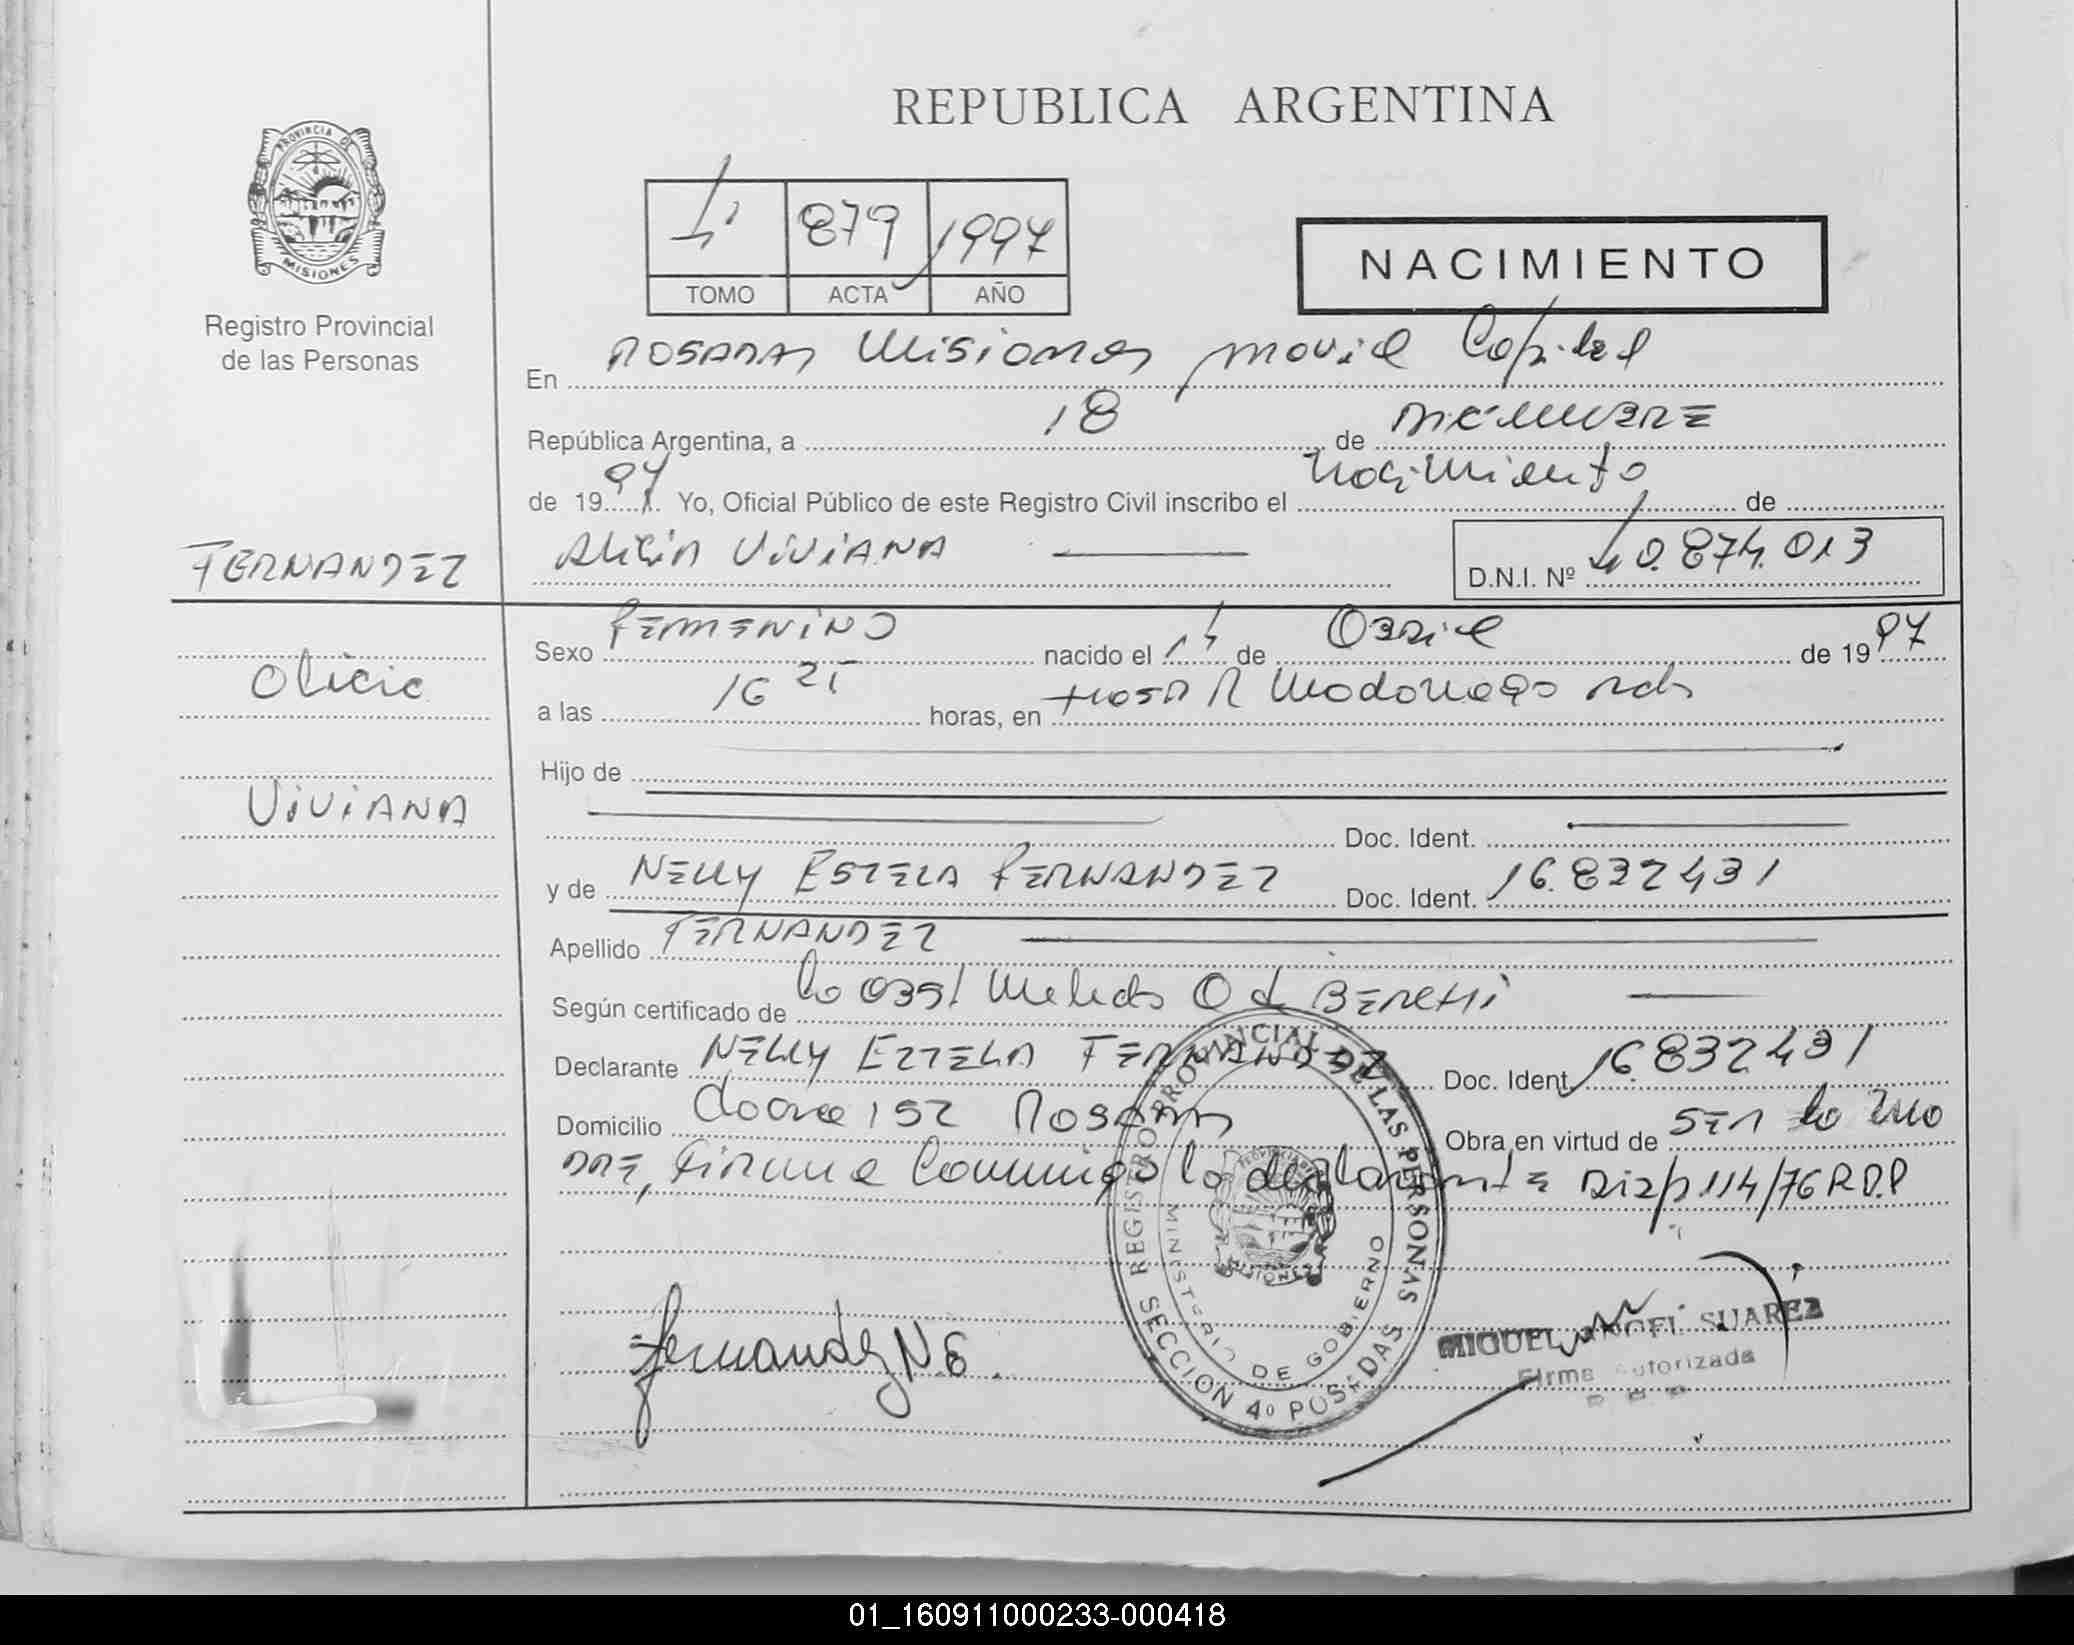 REPUBLICA ARGENTINA
PROVINCIA DE
MISIONES
Registro Provincial
de las Personas
879 1997
TOMO ACTA AÑO
NACIMIENTO
En POSADAS Misiones movil Capital
República Argentina, a 18 de DICIEMBRE
de 1997 Yo, Oficial Público de este Registro Civil inscribo el Nacimiento de
FERNANDEZ
ALICIA VIVIANA
D.N.I. Nº 40.874.013
Alicia
VIVIANA
Sexo FEMENINO nacido el 14 de ABRIL de 1997
a las 16 25 horas, en HOSP R Madariaga Pdas
Hijo de
Doc. Ident.
y de NELLY ESTELA FERNANDEZ Doc. Ident. 16.832431
Apellido FERNANDEZ
Según certificado de la Obst
Declarante NELLY ESTELA FERNANDEZ Doc. Ident. 16.832.431
Domicilio 152 POSADAS Obra en virtud de SER la MA
DRE, Firma Conmigo la declarante Disp 114/76 R.P.P
REGISTRO PROVINCIAL DE LAS PERSONAS
MINISTERIO DE GOBIERNO
SECCION 4º POSADAS
PROVINCIA DE
MISIONES
Fernandez N.E.
MIGUEL ANGEL SUAREZ
Firma Autorizada
01_160911000233-000418